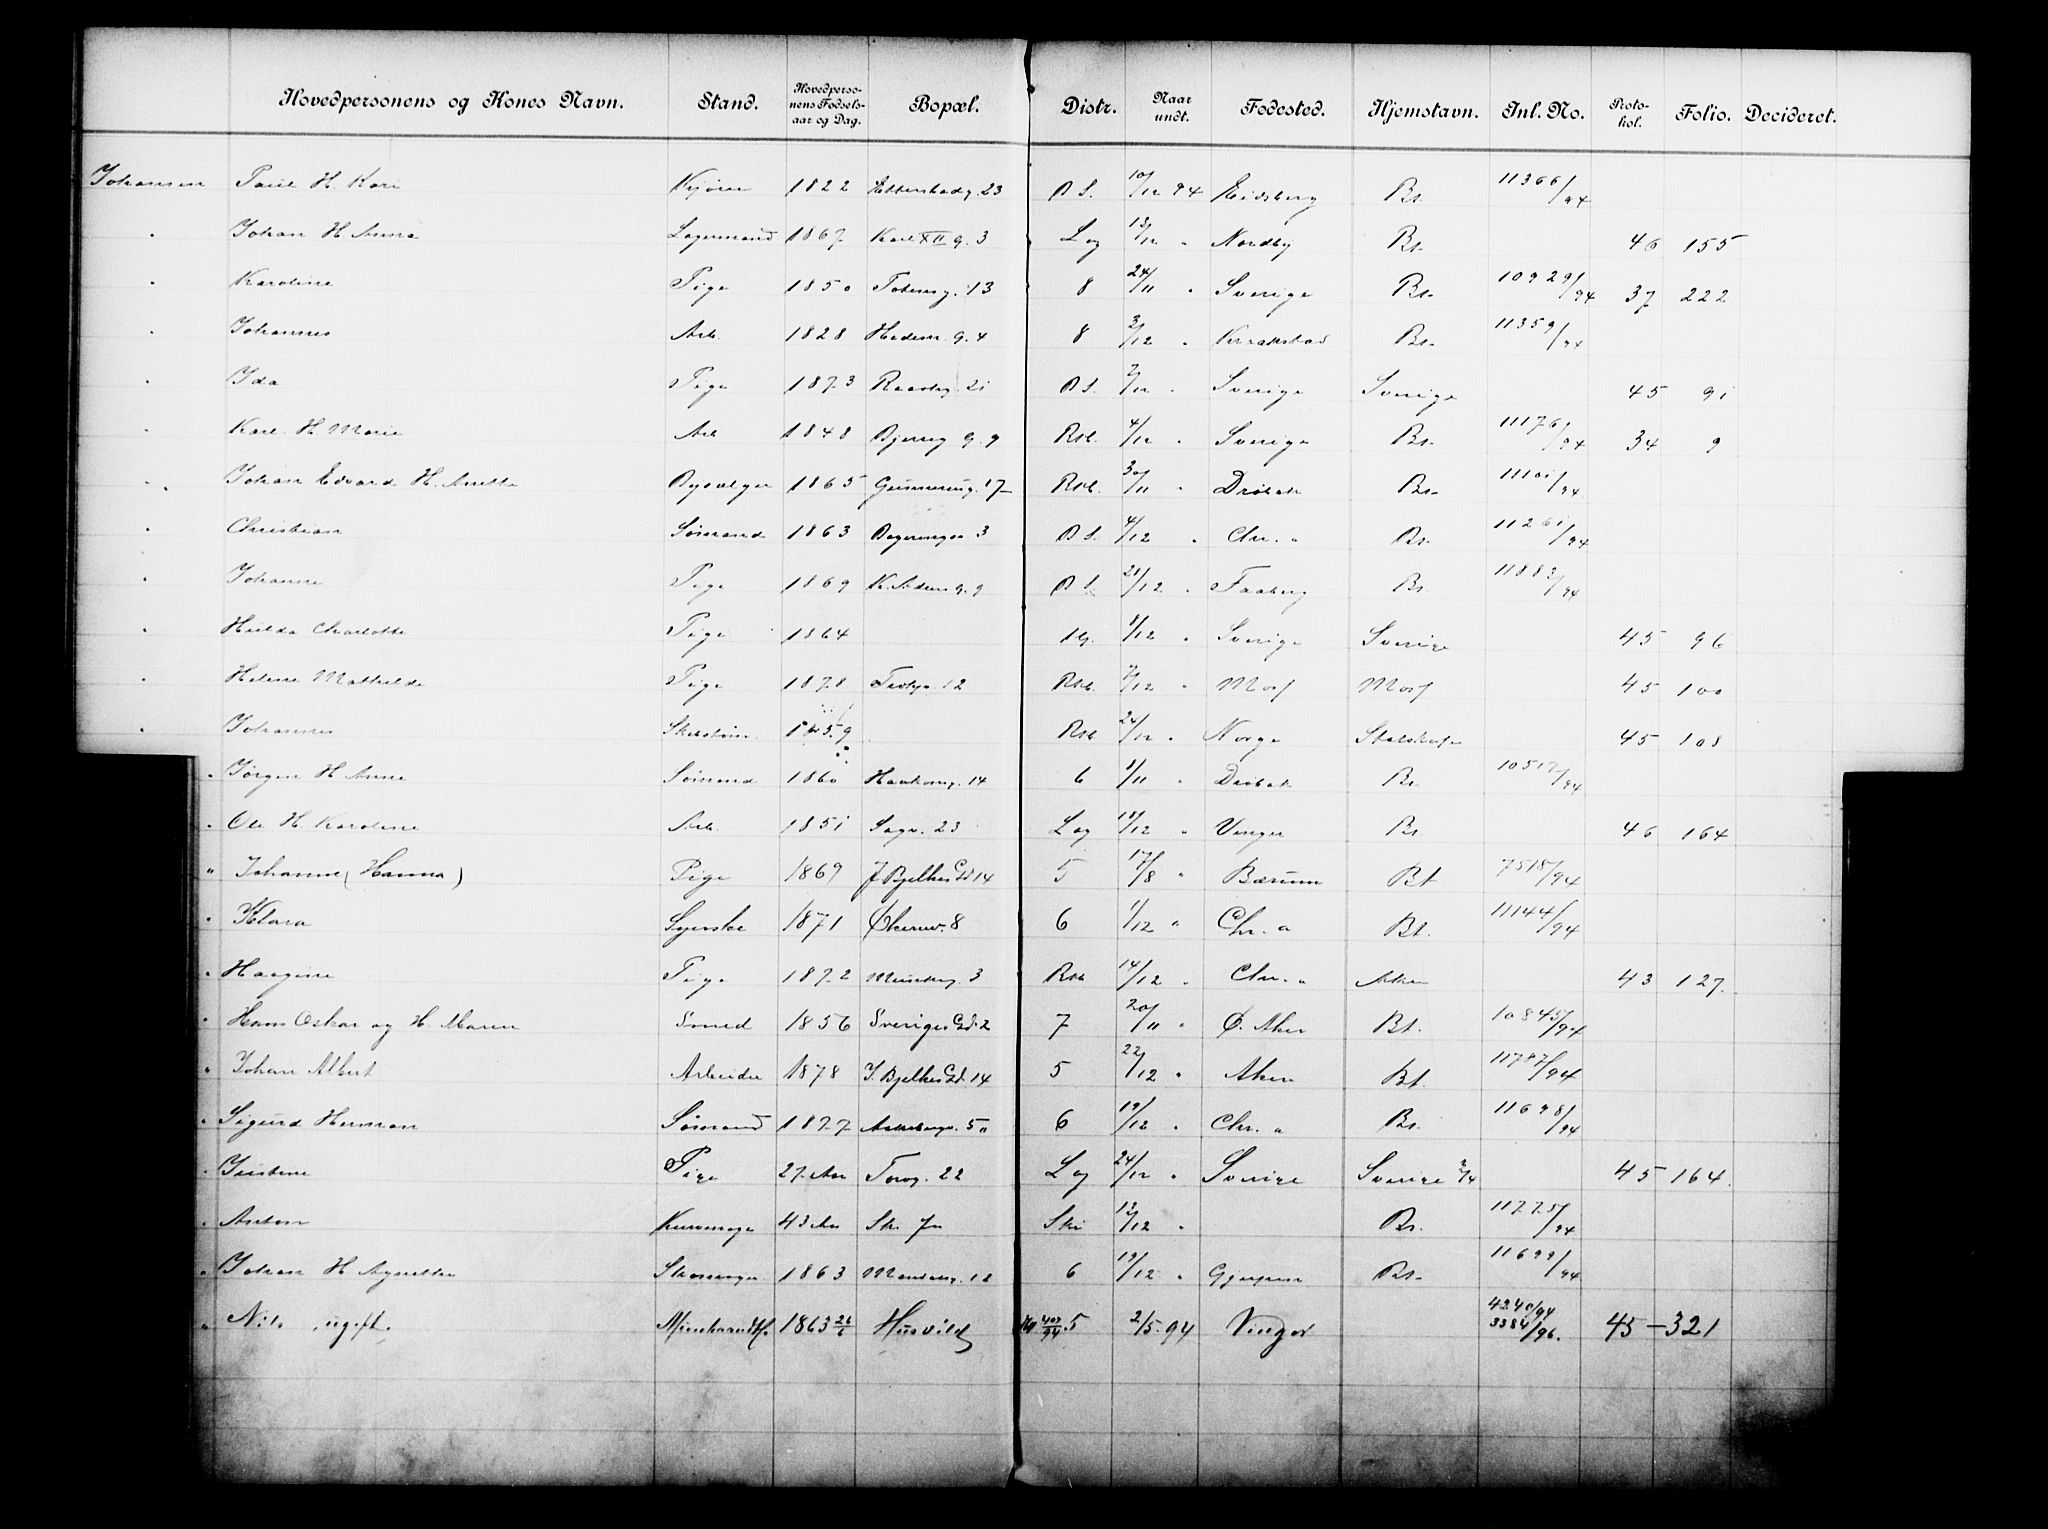 Hovedpersonens og Kones Navn. Stand. Hovedperso- nens Fødsels- aar og Dag. Bopæl. Distr. Naar undt. Fødested. Hjemstavn. Inl. No. Proto- kol. Folio. Decideret.
Johansen Paul H. Kari Kjører 1822 23 B S. 10/12 94 Eidsberg Bt. 11366/94
" Johan H. Anna Lagermand 1867 Karl XII g. 3 Log 12/12 " Nordby Bt. 46 155
" Karoline Pige 1850 13 8 24/11 " Sverige Bt. 10929/94 37 222
" Johannes Arb. 1828 Hedem. g. 4 8 3/12 " Kraakstad Bt. 11359/94
" Ida Pige 1873 21 B S. 7/12 " Sverige Sverige 45 91
" Karl H. Marie Arb. 1848 9 Rst. 4/12 " Sverige Bt. 11176/94 34 9
" Johan Edvard H. Anette 1865 Grønneng. 17 Rst. 30/11 " Drøbak Bt. 11101/94
" Christian Sømand 1863 3 B S. 4/12 " Chr. a Bt. 11261/94
" Johanne Pige 1869 9 B S. 28/12 " Faaberg Bt. 11883/94
" Hulda Charlotte Pige 1864 8/12 " Sverige Sverige 45 96
" Helene Mathilde Pige 1878 Tvetg. 12 Rst. 7/12 " Moss Moss 45 100
" Johannes 1859 Rst. 24/12 " Norge 45 108
" Jørgen H. Anne Sømand 1860 Hauksg. 14 6 1/11 " Drøbak Bt. 10517/94
" Ole H. Karoline Arb. 1851 Sagv. 23 Log 18/12 " Vinger Bt. 46 164
" Johanne (Hanna) Pige 1869 J. Bjelkes Gd. 14 5 17/8 " Bærum Bt. 7518/94
" Klara Syerske 1871 Økernv. 8 6 1/12 " Chr. a Bt. 11144/94
" Haagine Pige 1872 Munkeg. 3 Rst. 14/12 " Chr. a Aker 43 127
" Hans Oskar og H. Maren Smed 1856 Sveriges Gd. 2 7 20/11 " Ø. Aker Bt. 10845/94
" Johan Albert Arbeider 1878 J. Bjelkes Gd. 14 5 22/12 " Aker Bt. 11787/94
" Sigurd Herman Sømand 1877 Akebergv. 50 6 19/12 " Chr. a Bt. 11698/94
" Justine Pige 27 Aar Torvg. 22 Log 24/12 " Sverige Sverige 45 164
" Anton Kurvmager 43 Aar Ski 12/12 " Bt. 11775/94
" Johan H. Agnethe Skomager 1863 Mandalsg. 12 6 19/12 " Gjerpen Bt. 11699/94
" Nils, ugift, 1863 26/6 Husvild No. 407/94 5 2/5 94 Vinger 4240/94 3384/96. 45 - 321